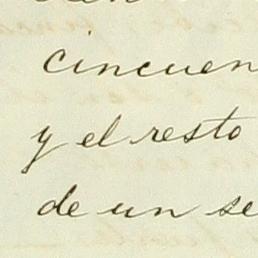 cincuen
y el resto
de un se